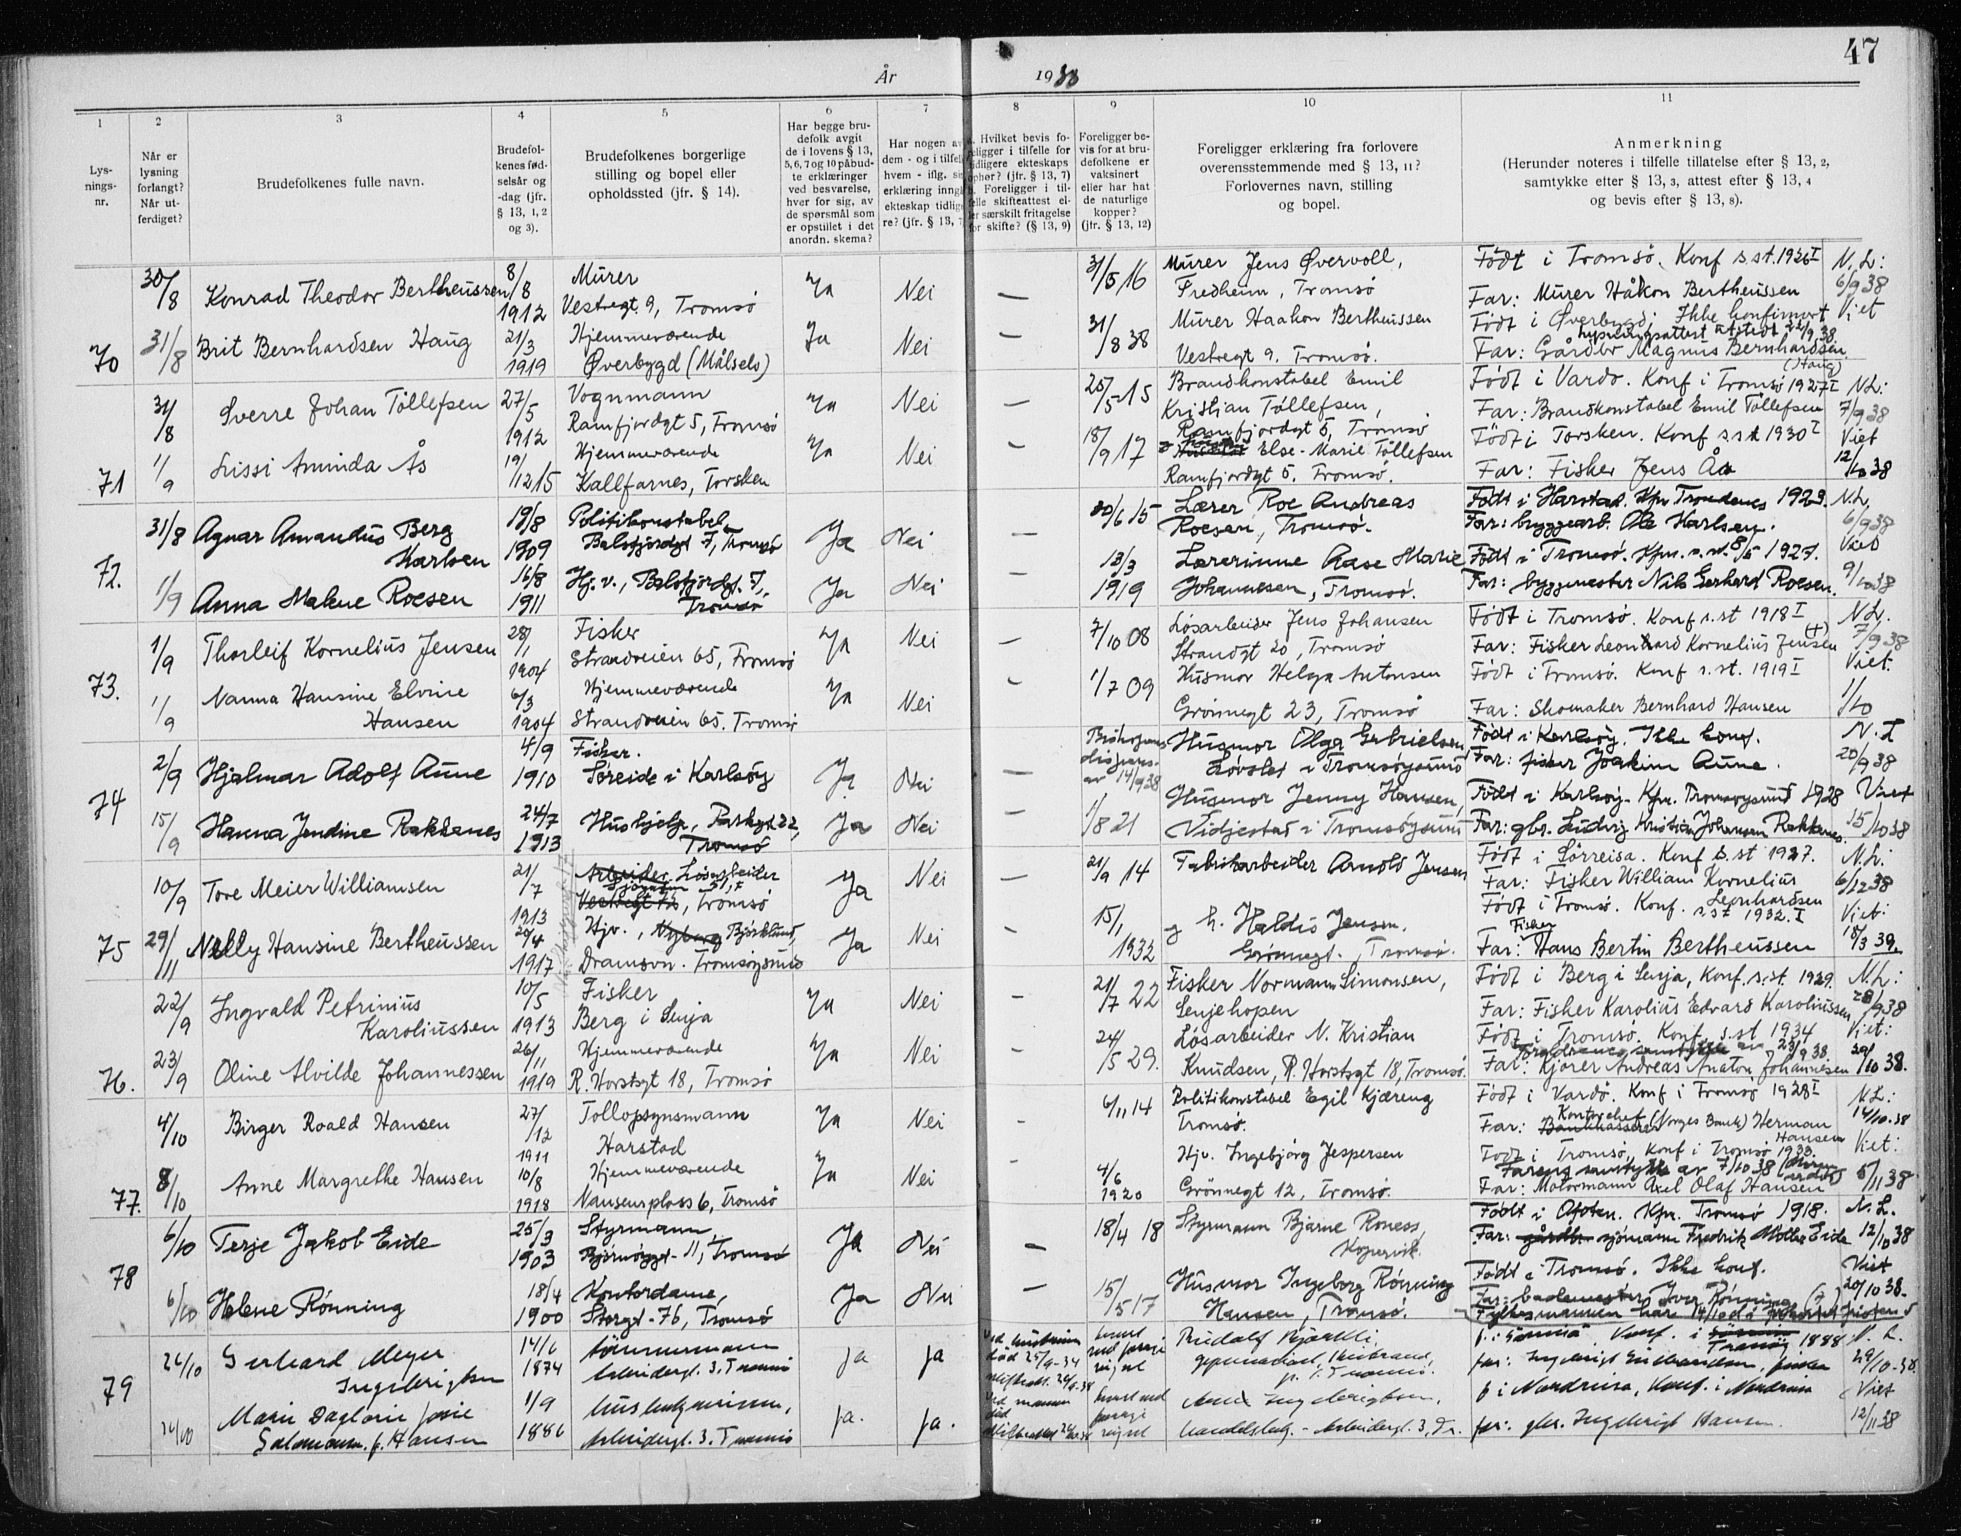 År 1938
47
1 2 3 4 5 6 7 8 9 10 11
Lys-
nings-
nr.
Når er
lysning
forlangt?
Når ut-
ferdiget?
Brudefolkenes fulle navn.
Brudefol-
kenes fød-
selsår og
-dag (jfr.
§ 13, 1, 2
og 3).
Brudefolkenes borgerlige
stilling og bopel eller
opholdssted (jfr. § 14).
Har begge bru-
defolk avgit
de i lovens § 13,
5, 6, 7 og 10 påbud-
te erklæringer
ved besvarelse,
hver for sig, av
de spørsmål som
er opstillet i det
anordn. skema?
Har nogen av
dem - og i tilfelle
hvem - iflg. sin
erklæring inngått
ekteskap tidlige-
re? (jfr. § 13, 7
Hvilket bevis fo-
religger i tilfelle for
tidligere ekteskaps
ophør? (jfr. § 13, 7)
Foreligger i til-
felle skifteattest el-
ler særskilt fritagelse
for skifte? (§ 13, 9)
Foreligger be-
vis for at bru-
defolkene er
vaksinert
eller har hat
de naturlige
kopper?
(jfr. § 13, 12)
Foreligger erklæring fra forlovere
overensstemmende med § 13, 11?
Forlovernes navn, stilling
og bopel.
Anmerkning
(Herunder noteres i tilfelle tillatelse efter § 13, 2,
samtykke efter § 13, 3, attest efter § 13, 4
og bevis efter § 13, 8).
70
30/8 Konrad Theodor Bertheussen 8/8 1912 Murer
Vestregt 9, Tromsø Ja Nei — 31/5 16 Murer Jens Øvervoll,
Fredheim, Tromsø Født i Tromsø. Konf s.st. 1926 I
Far: Murer Håkon Bertheussen N.L: 6/9 38
31/8 Brit Bernhardsen Haug 21/3 1919 Hjemmeværende
Øverbygd (Målselv) Ja Nei — 31/8 38 Murer Haakon Bertheussen
Vestregt 9. Tromsø. Født i Øverbygd; Ikke konfirmert
Far: Gårdbr Magnus Bernhardsen (Haug) Viet
71
31/8 Sverre Johan Tøllefsen 27/5 1912 Vognmann
Ramfjordgt 5, Tromsø Ja Nei — 25/5 15 Brandkonstabel Emil
Kristian Tøllefsen,
Ramfjordgt 5, Tromsø Født i Vardø. Konf i Tromsø 1927 I
Far: Brandkonstabel Emil Tøllefsen N.L: 7/9 38
1/9 Lissi Aminda Ås 19/12 15 Hjemmeværende
Kallfarnes, Torsken Ja Nei — 18/9 17 Else-Marie Tøllefsen
Ramfjordgt 5. Tromsø. Født i Torsken. Konf s.st 1930 I
Far: Fisker Jens Ås Viet 12/10 38
72.
31/8 Agnar Amandus Berg
Karlsen 19/8 1909 Politikonstabel
Balsfjordgt 7, Tromsø Ja Nei — 20/6 15 Lærer Roe Andreas
Roesen, Tromsø. Født i Harstad. Kfm Trondenes 1923.
Far: byggearb. Ole Karlsen. N.L. 6/9 38
1/9 Anna Malene Roesen 16/8 1911 Hj.v., Balsfjordgt. 7,
Tromsø Ja Nei — 13/3 1919 Lærerinne Aase Marie
Johannesen, Tromsø. Født i Tromsø. Kfm. s. st. 8/5 1927.
Far: byggmester Nils Gerhard Roesen. Viet 9/10 38
73.
1/9 Thorleif Kornelius Jensen 28/1 1904 Fisker
Strandveien 65, Tromsø Ja Nei — 7/10 08 Løsarbeider Jens Johansen
Strandgt 20, Tromsø Født i Tromsø. Konf s.st 1918 I
Far: Fisker Leonhard Kornelius Jensen (+) N.L. 7/9 38
1/9 Nanna Hansine Elvine
Hansen 6/3 1904 Hjemmeværende
Strandveien 65. Tromsø Ja Nei — 1/7 09 Husmor Helga Antonsen
Grønnegt 23, Tromsø Født i Tromsø. Konf s.st. 1919 I
Far: Skomaker Bernhard Hansen Viet. 1/10
74
2/9 Hjalmar Adolf Aune 4/9 1910 Fisker.
Søreide i Karlsøy Ja Nei — Biskopens
dispens.
av 14/9 38 Husmor Olga Gabrielsen,
Løvslet i Tromsøysund Født i Karlsøy. Ikke konf.
Far: fisker Joakim Aune. N.L 20/9 38
15/9 Hanna Jendine Rakkenes 24/7 1913 Hushjelp, Parkgt 22,
Tromsø Ja Nei — 1/8 21 Husmor Jenny Hansen,
Vidjestad i Tromsøysund Født i Karlsøy. Kfm. Tromsøysund 1928
Far: gbr. Ludvig Kristian Johansen Rakkenes. Viet 15/10 38
75
10/9 Tore Meier Williamsen 21/7 1913 Arbeider Løsarbeider
Sjøgaten 31, I
Vestregt 73, Tromsø Ja Nei — 21/9 14 Fabrikarbeider Arnold Jensen Født i Sørreisa. Konf s.st 1927.
Far: Fisker William Kornelius
Leonhardsen N.L: 6/12 38
29/11 Nelly Hansine Bertheussen 20/4 1917 Hjv., Nyborg Bjørklund,
Dramsvn. Tromsøysund Ja Nei — 15/1 1932 og h. Haldis Jensen.
Grønnegt. Tromsø. Født i Tromsø. Konf. s.st 1932. I
Far: Fisker Hans Bertin Bertheussen Viet: 18/3 39.
76.
22/9 Ingvald Petrinius
Karoliussen 10/5 1913 Fisker
Berg i Senja Ja Nei — 21/7 22 Fisker Normann Simonsen,
Senjehopen Født i Berg i Senja, Konf. s.st. 1929.
Far: Fisker Karolius Edvard Karoliussen N.L: 28/9 38
23/9 Oline Alvilde Johannessen 26/11 1919 Hjemmeværende
R. Horstsgt 18, Tromsø Ja Nei — 24/5 29. Løsarbeider N. Kristian
Knudsen, R. Horstsgt 18, Tromsø. Født i Tromsø. Konf. s.st 1934
Foreldrenes samtykke av 23/9 38.
Far: Kjører Andreas Anaton Johannesen Viet: 30/10 38.
77.
4/10 Birger Roald Hansen 27/12 1911 Tollopsynsmann
Harstad Ja Nei - 6/11 14 Politikonstabel Egil Kjæreng
Tromsø. Født i Vardø. Konf i Tromsø 1928 I
Far: Bankkasserer Kontorchef (Norges Bank) Herman
Hansen N.L: 14/10-38
8/10 Anne Margrethe Hansen 10/8 1918 Hjemmeværende
Nansens plass 6, Tromsø Ja Nei - 4/6 1920 Hjv. Ingebjørg Jespersen
Grønnegt 12, Tromsø. Født i Tromsø, Konf i Tromsø 1933.
Farens samtykke av 7/10 38
Far: Motormann Axel Olaf Hansen Viet: 5/11 38
78
6/10 Terje Jakob Eide 25/3 1903 Styrmann
Bjørnøygt-11, Tromsø Ja Nei — 18/4 18 Styrmann Bjarne Roness
Kopervik. Født i Ofoten. Kfm. Tromsø 1918.
Far: gårdb. sjømann Fredrik Møller Eide N.L. 12/10 38
6/10 Helene Rønning 18/4 1900 Kontordame,
Storgt-76, Tromsø Ja Nei — 15/5 17 Husmor Ingeborg Rønning
Hansen, Tromsø. Født i Tromsø. Ikke konf.
Far: bademester Iver Rønning (+)
Fylkesmannen har 14/10 Viet 20/10 38.
79
24/10 Gerhard Meyer
Ingebrigtsen 14/6 1874 tømmermann
Arbeidergt. 3. Tromsø ja ja ved hustruens
død 25/9-34 Rudolf Bjørkli Konf. i Tranøy 1888
far: N.L. 29/10-38.
24/10 Marie Daglorie Josie
Salomonsen f. Hansen 1/9 1886 husholderinne,
Arbeidergt. 3. Tromsø ja. ja. ved mannens
død Ingebrigtsen,
Arbeidergt. 3, Tr. f i Nordreisa, Konf. i Nordreisa
far: gbr. Ingebrigt Hansen. Viet 12/11 38